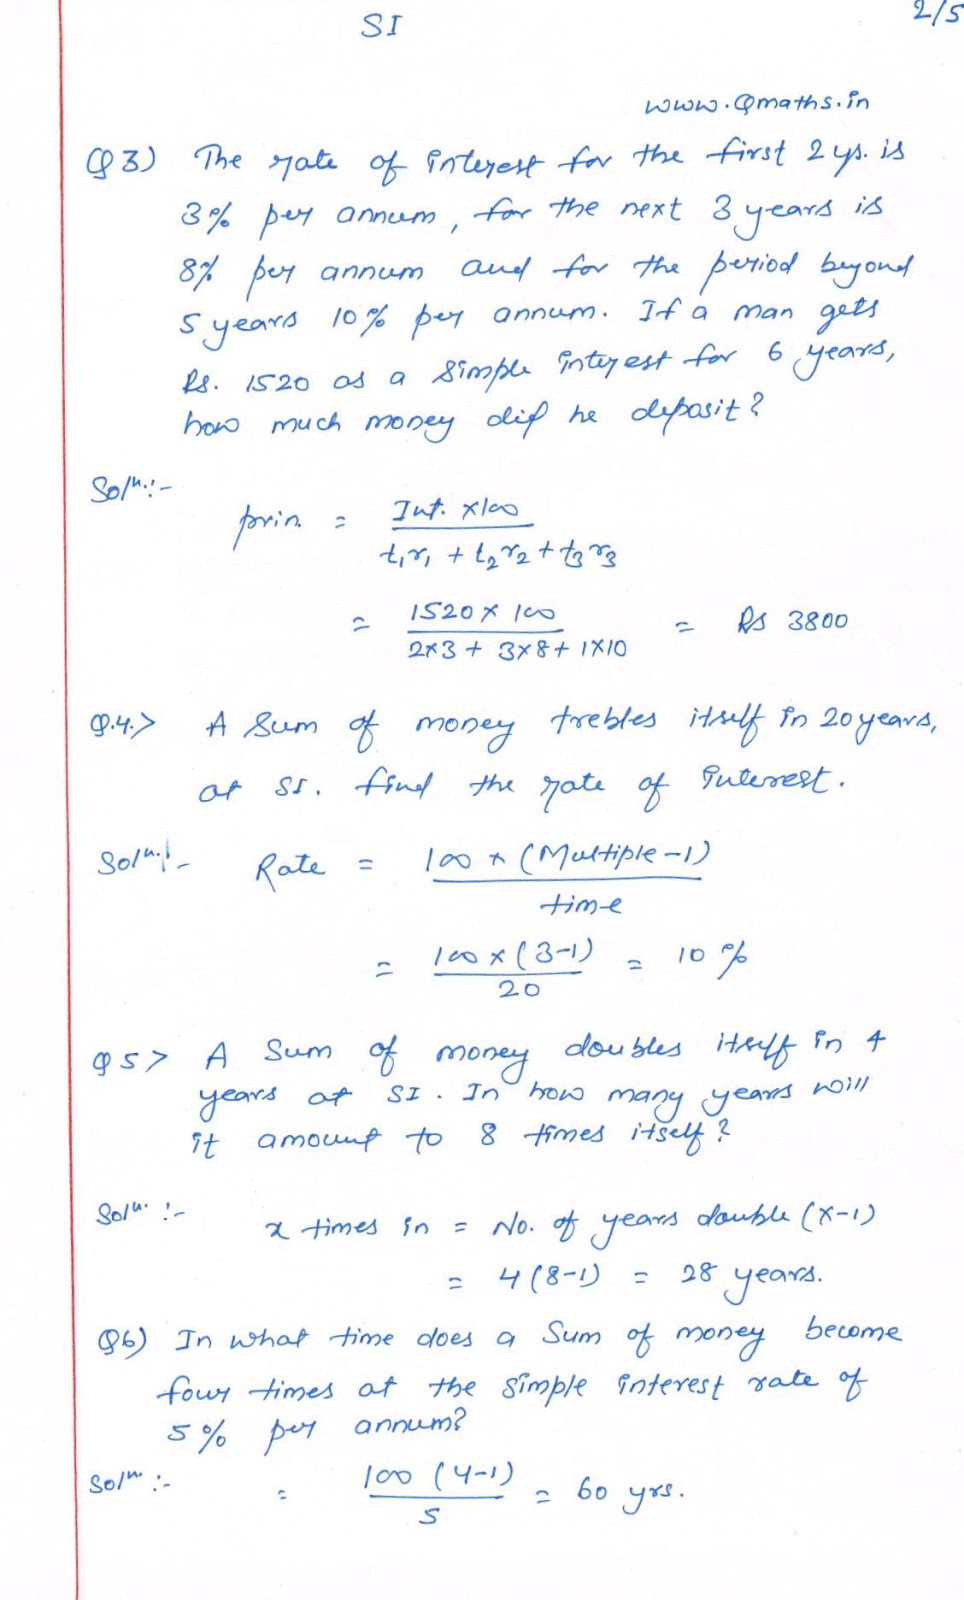 SI
2/5
www.Qmaths.in
Q3) The rate of interest for the first 2 ys. is
3% per annum, for the next 3 years is
8% per annum and for the period beyond
5 years 10% per annum. If a man gets
Rs. 1520 as a simple interest for 6 years,
how much money did he deposit?
Soln:-
prin = Int. x100 / t₁r₁ + t₂r₂ + t₃r₃
= 1520 x 100 / 2x3 + 3x8 + 1x10 = Rs 3800
Q.4.> A Sum of money trebles itself in 20 years,
at SI. find the rate of interest.
Soln:- Rate = 100 x (Multiple-1) / time
= 100 x (3-1) / 20 = 10%
Q5> A Sum of money doubles itself in 4
years at SI. In how many years will
it amount to 8 times itself?
Soln:- x times in = No. of years double (x-1)
= 4(8-1) = 28 years.
Q6) In what time does a Sum of money become
four times at the simple interest rate of
5% per annum?
Soln:- = 100 (4-1) / 5 = 60 yrs.